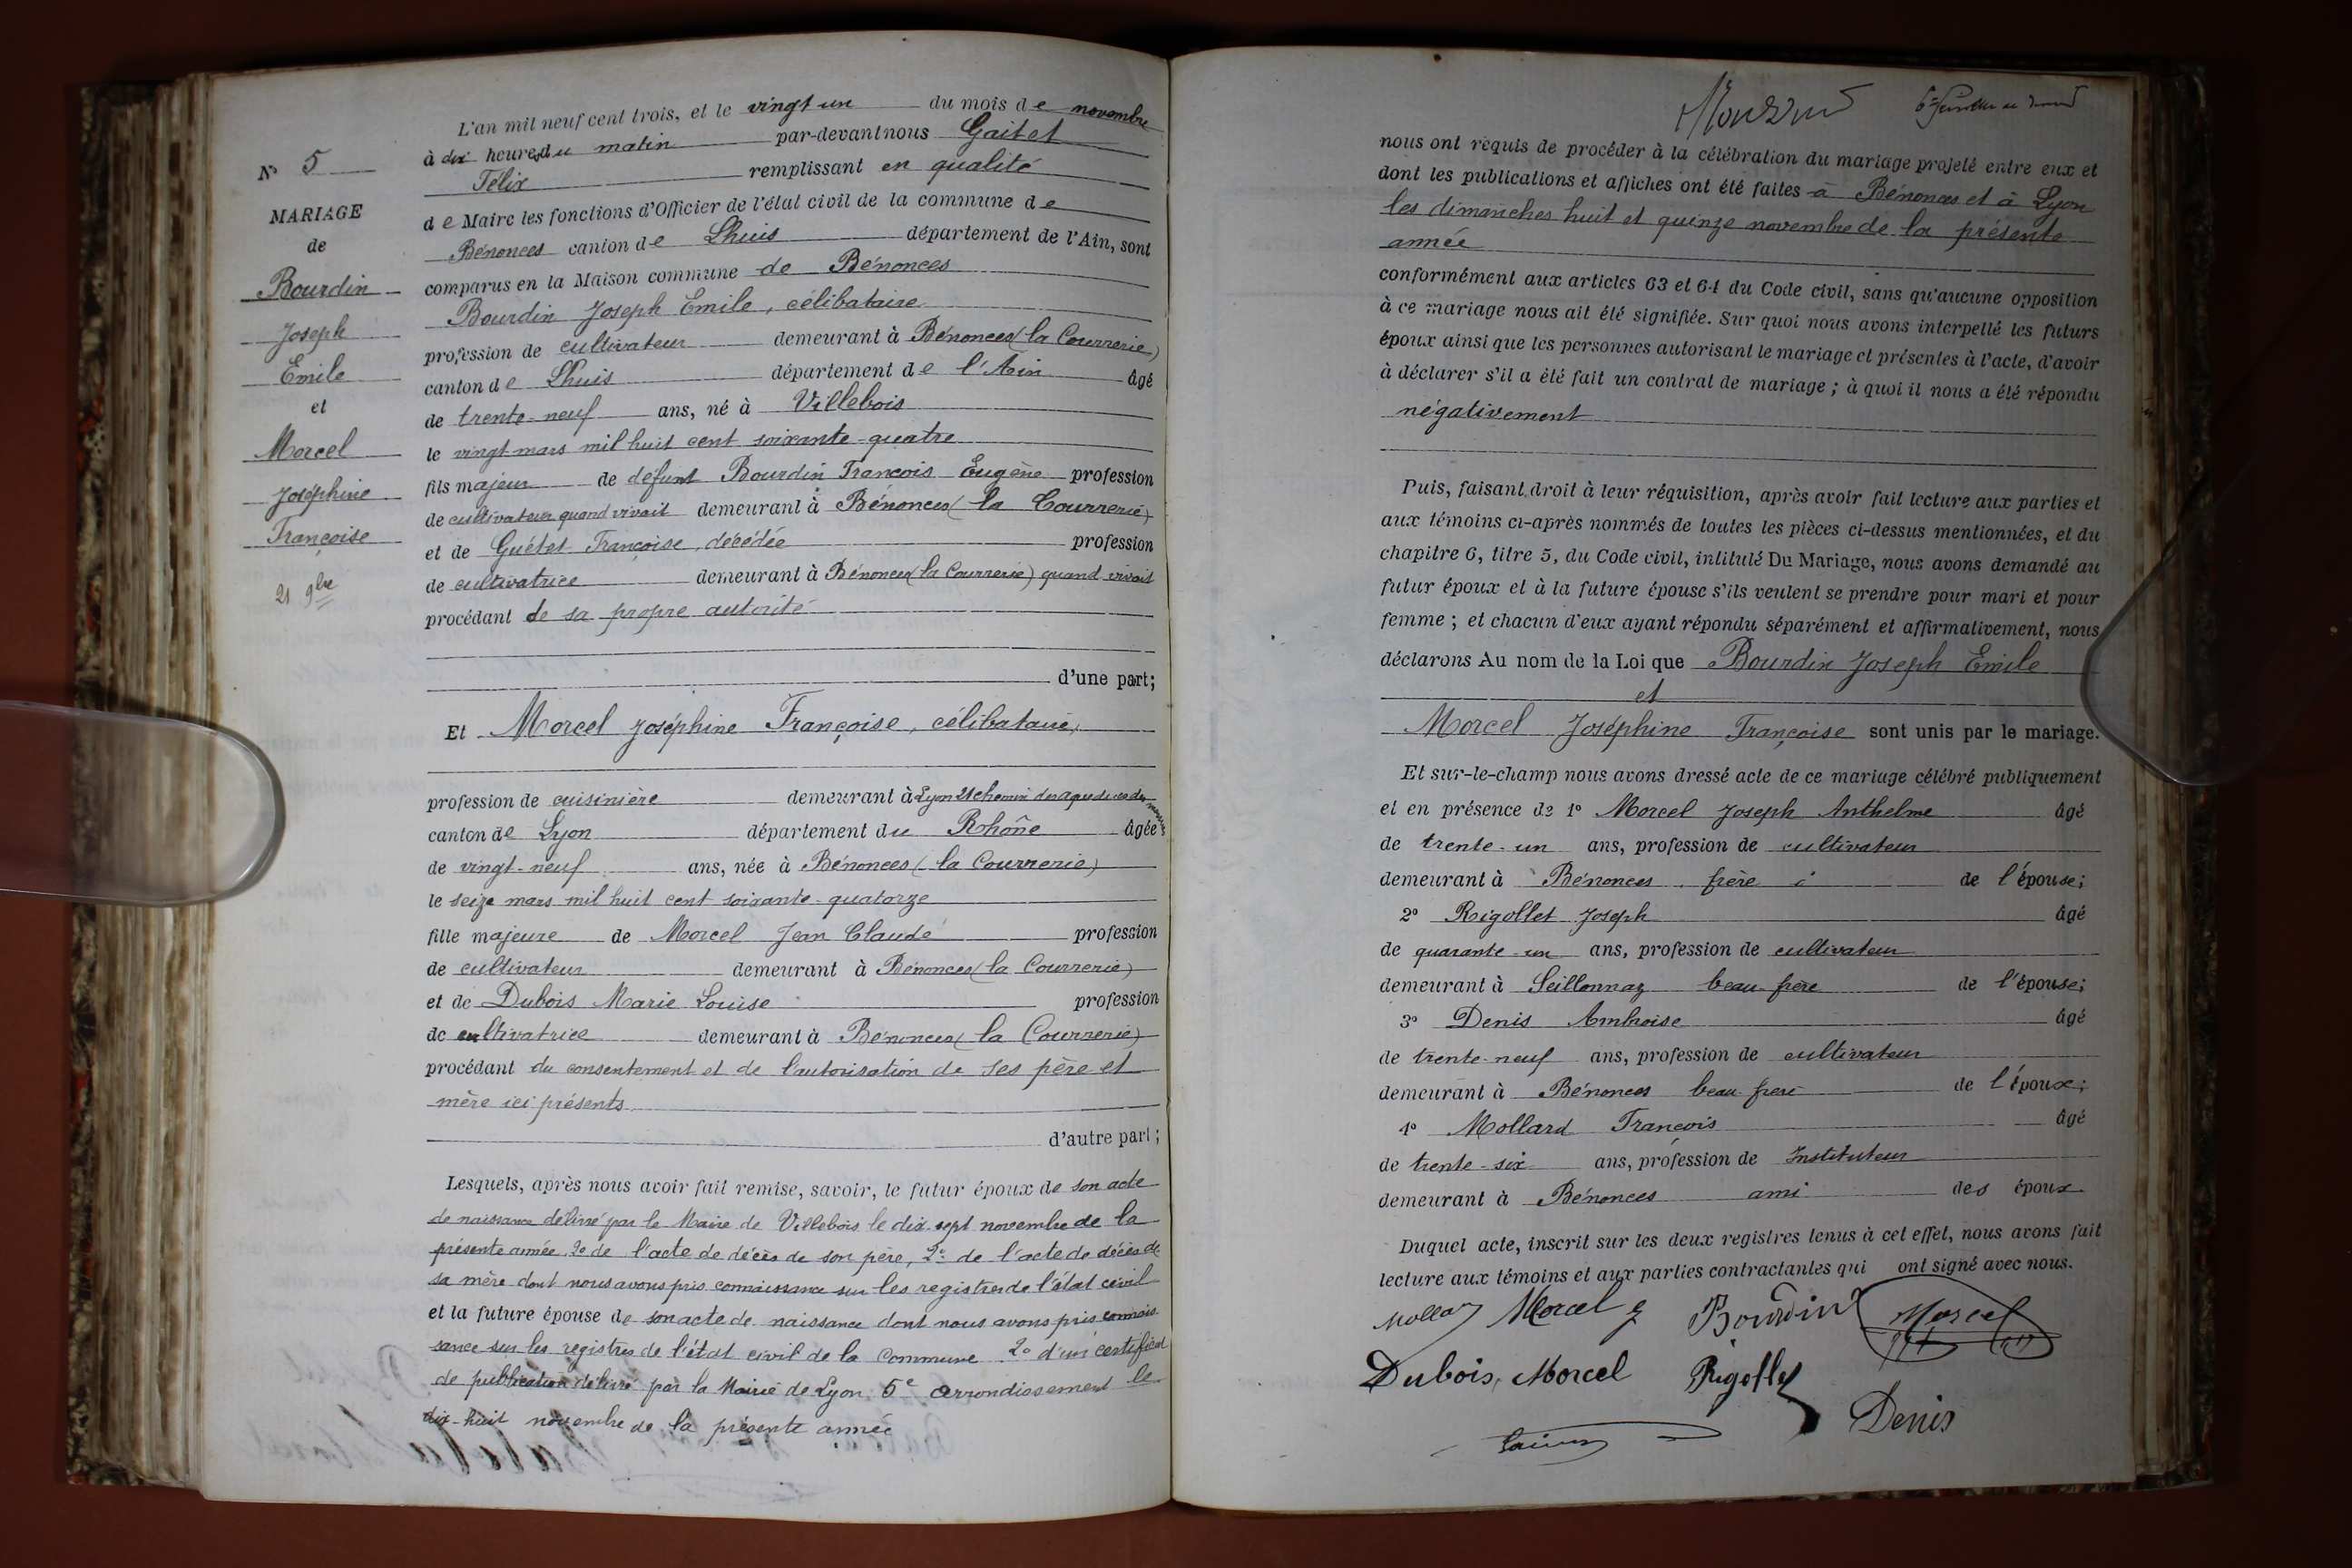 N° 5
MARIAGE
de
Bourdin
Joseph
Emile
et
Morcel
Joséphine
Françoise
21 9bre
L'an mil neuf cent trois, et le vingt un du mois de novembre
à dix heures du matin par-devant nous Gaitet
Félix remplissant en qualité
de Maire les fonctions d'Officier de l'état civil de la commune de
Bénonces canton de Lhuis département de l'Ain, sont
comparus en la Maison commune de Bénonces
Bourdin Joseph Emile, célibataire
profession de cultivateur demeurant à Bénonces (la Courrerie)
canton de Lhuis département de l'Ain âgé
de trente-neuf ans, né à Villebois
le vingt mars mil huit cent soixante-quatre
fils majeur de défunt Bourdin François Eugène profession
de cultivateur quand vivait demeurant à Bénonces (la Courrerie)
et de Guétet Françoise, décédée profession
de cultivatrice demeurant à Bénonces (la Courrerie) quand vivait
procédant de sa propre autorité
d'une part;
Et Morcel Joséphine Françoise, célibataire,
profession de cuisinière demeurant à Lyon 21 chemin des aqueducs
canton de Lyon département du Rhône âgée
de vingt-neuf ans, née à Bénonces (la Courrerie)
le seize mars mil huit cent soixante-quatorze
fille majeure de Morcel Jean Claude profession
de cultivateur demeurant à Bénonces (la Courrerie)
et de Dubois Marie Louise profession
de cultivatrice demeurant à Bénonces (la Courrerie)
procédant du consentement et de l'autorisation de ses père et
mère ici présents
d'autre part;
Lesquels, après nous avoir fait remise, savoir, le futur époux de son acte
de naissance délivré par le Maire de Villebois le dix-sept novembre de la
présente année 2o de l'acte de décès de son père, 2o de l'acte de décès de
sa mère dont nous avons pris connaissance sur les registres de l'état civil
et la future épouse de son acte de naissance dont nous avons pris connais-
sance sur les registres de l'état civil de la commune 2o d'un certificat
de publication délivré par la Mairie de Lyon 5e arrondissement le
dix-huit novembre de la présente année
nous ont requis de procéder à la célébration du mariage projeté entre eux et
dont les publications et affiches ont été faites à Bénonces et à Lyon
les dimanches huit et quinze novembre de la présente
année
conformément aux articles 63 et 64 du Code civil, sans qu'aucune opposition
à ce mariage nous ait été signifiée. Sur quoi nous avons interpellé les futurs
époux ainsi que les personnes autorisant le mariage et présentes à l'acte, d'avoir
à déclarer s'il a été fait un contrat de mariage; à quoi il nous a été répondu
négativement
Puis, faisant droit à leur réquisition, après avoir fait lecture aux parties et
aux témoins ci-après nommés de toutes les pièces ci-dessus mentionnées, et du
chapitre 6, titre 5, du Code civil, intitulé Du Mariage, nous avons demandé au
futur époux et à la future épouse s'ils veulent se prendre pour mari et pour
femme; et chacun d'eux ayant répondu séparément et affirmativement, nous
déclarons Au nom de la Loi que Bourdin Joseph Emile
et
Morcel Joséphine Françoise sont unis par le mariage.
Et sur-le-champ nous avons dressé acte de ce mariage célébré publiquement
et en présence de 1° Morcel Joseph Anthelme âgé
de trente-un ans, profession de cultivateur
demeurant à Bénonces frère de l'épouse;
2° Rigollet Joseph âgé
de quarante-un ans, profession de cultivateur
demeurant à Seillonnaz beau-frère de l'épouse;
3° Denis Ambroise âgé
de trente-neuf ans, profession de cultivateur
demeurant à Bénonces beau-frère de l'époux;
4° Mollard François âgé
de trente-six ans, profession de Instituteur
demeurant à Bénonces ami des époux
Duquel acte, inscrit sur les deux registres tenus à cet effet, nous avons fait
lecture aux témoins et aux parties contractantes qui ont signé avec nous.
Morcel Bourdin Morcel
Dubois Morcel Rigollet
Denis